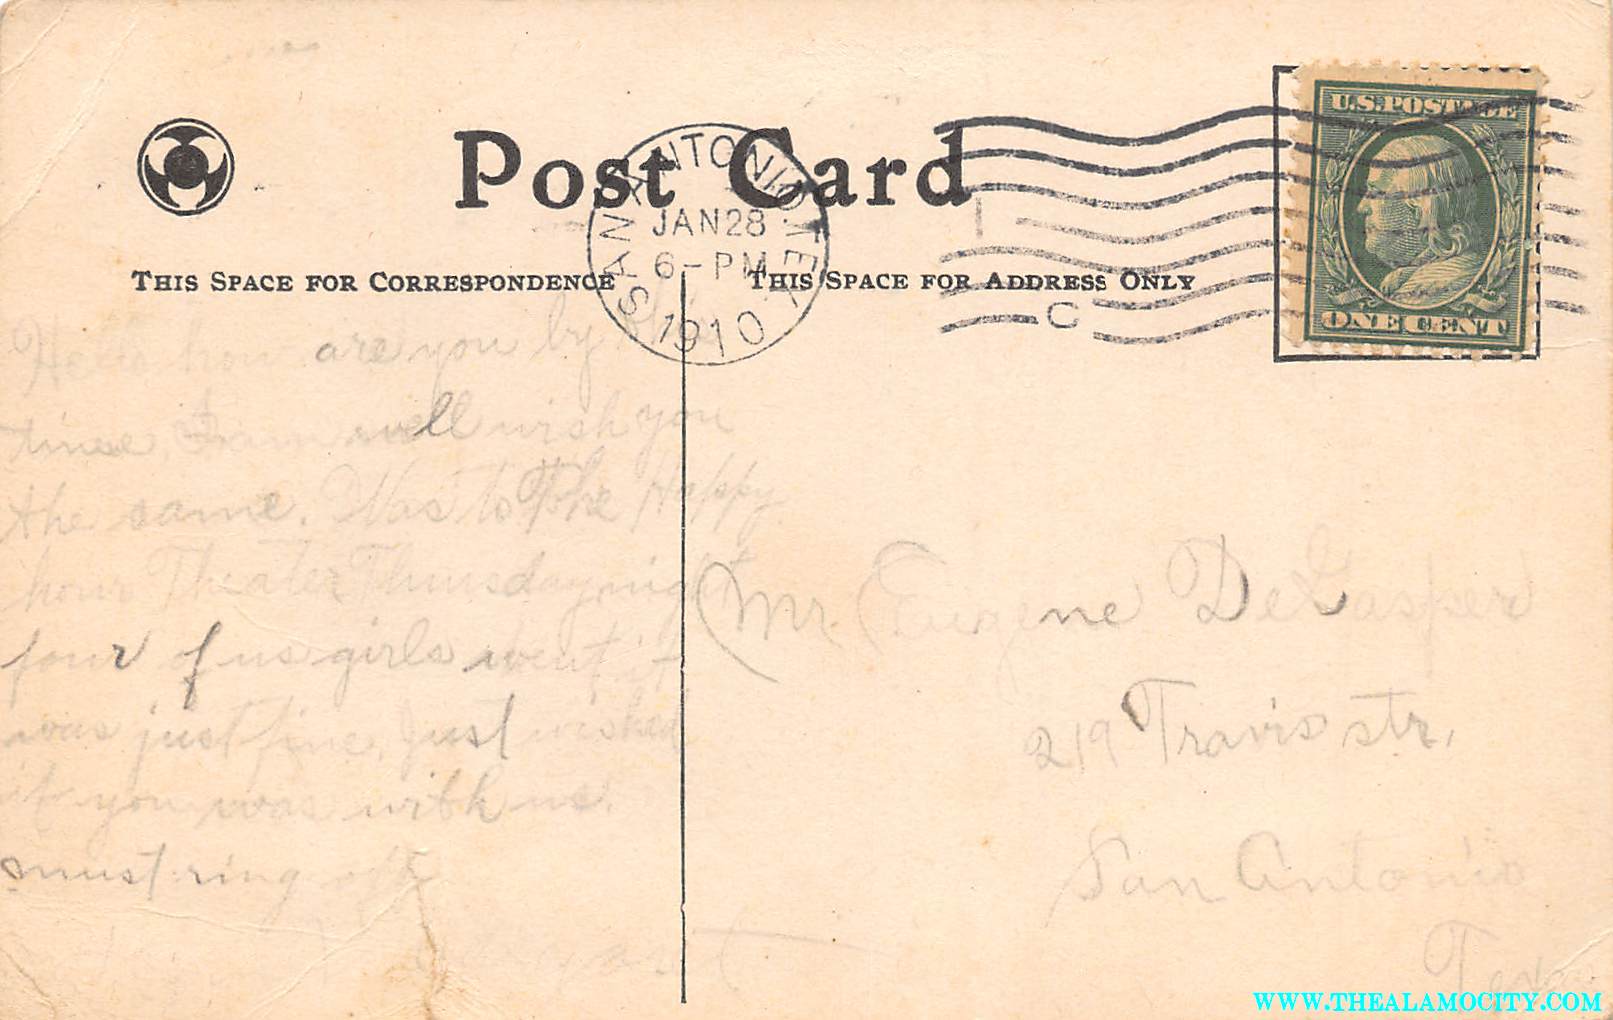 Post Card
SAN ANTONIO, TEX.
JAN 28
6-PM
1910
U.S. POSTAGE
ONE CENT
C
THIS SPACE FOR CORRESPONDENCE
THIS SPACE FOR ADDRESS ONLY
Hello how are you by this
time. I am well wish you
the same. Was to The Happy
hour Theater Thursday night
four of us girls went it
was just fine. Just wished
if you was with us.
must ring off
Mr. Eugene DeGasper
219 Travis str.
San Antonio
Texas
WWW.THEALAMOCITY.COM